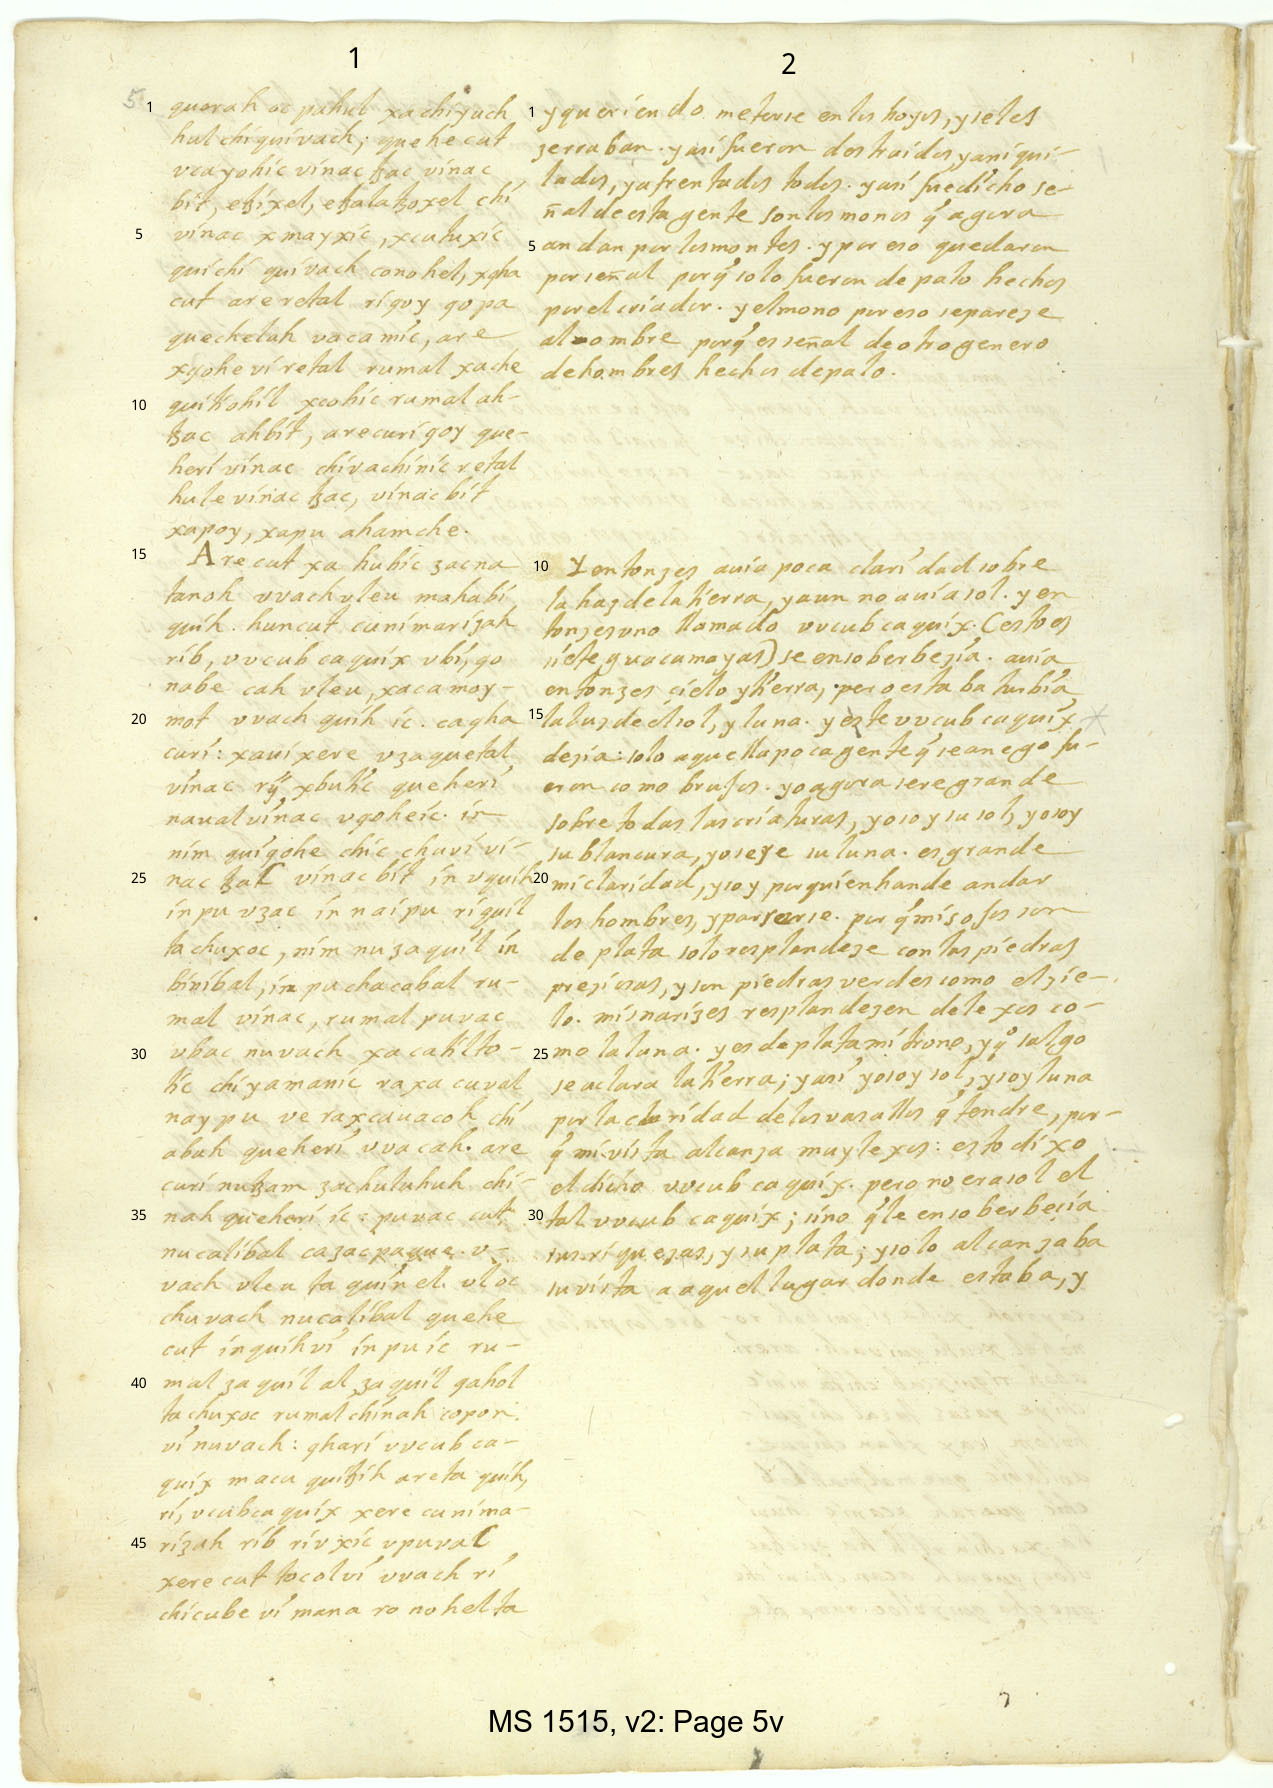 1
2
5
1 querah oc pahul xachiyuch
hul chiquivach; quehecut
vcayohic vinac tzac vinac
bit, etzixel, etzalatzoxel chi
5 vinac xmayxic, xcutuxic
quichi quivach conohel, xqha
cut are retal ri qoy qo pa
quechelah vacamic, are
xqohe vi retal rumal xache
10 quitiohil xcohic rumal ah-
tzac ahbit, arecuri qoy que-
heri vinac chivachinic retal
hule vinac tzac, vinac bit
xapoy, xapu ahamche.
15 Are cut xa hubic zacna
tanoh vvach vleu mahabi
quih. huncut cunimarizah
rib, vvcub caquix vbi, qo
nabe cah vleu, xacamoy-
20 mot vvach quih ic. cagha
curi: xavixere vzaquetal
vinac rij xbutic queheri
naual vinac vqoheic. in
nim quiqohe chic chuvi vi-
25 nac tzac vinac bit in vquih
inpu vzac in naipu riquil
tachuxoc, nim nuzaquil in
binibal, in pu chacabal ru-
mal vinac, rumal puvac
30 vbac nuvach xacatilto-
tic chiyamanic raxa cuval
naypu ve raxcauacoh chi
abah queheri vvacah. are
curi nutzam zachuluhuh chi-
35 nah queheri ic: puvac cut
nucalibal cazacpaque. v-
vach vleu ta quinel. vloc
chuvach nucalibal quehe
cut inquih vi inpu ic ru-
40 mal zaquil al zaquil qahol
tachuxoc rumal chinah copon.
vi nuvach: qhari vvcub ca-
quix macu quitzih areta quih,
ri, vcubcaquix xere cunima-
45 rizah rib rivxic vpuvac
xere cut tocolvi vvach ri
chicube vi mana ro nohel ta
1 y queriendo meterse en los hoyos, y se les
zerraban. y asi fueron destraidos, y aniqui-
lados, y afrentados todos. y asi fue dicho se-
ñal de esta gente son los monos q̃ agora
5 andan por los montes. y por eso quedaron
por señal porq̃ solo fueron de palo hechos
por el criador. y el mono por eso se pareze
al ombre porq̃ es señal de otro genero
de hombres hechos de palo.
10 Y entonzes auia poca claridad sobre
la haz de la tierra, y aun no auia sol. y en
tonzes uno llamado vvcub caquix. (esto es
siete guacamayas) se ensoberbezia. auia
entonzes cielo y tierra, pero estaba turbia
15 la luz de el sol, y luna. y este vvcub caquix
dezia: solo aquella poca gente q̃ se anego fu-
eron como brujos. yo agora sere grande
sobre todas las criaturas, yo soy su sol, yo soy
su blancura, yo seye su luna. es grande
20 mi claridad, y soy por quien han de andar
los hombres, y pararse. por q̃ mis ojos son
de plata solo resplandeze con las piedras
preziosas, y son piedras verdes como el zie-
lo. mis narizes resplandezen de lexos co-
25 mo la luna. y es de plata mi trono, y qº salgo
se aclara la tierra; y asi yo soy sol, y soy luna
por la claridad de los vasallos q̃ tendre, por-
q̃ mi vista alcanza muy lexos: esto dixo
el dicho vvcub caquix. pero no era sol el
30 tal vvcub caquix; sino q̃ le ensoberbesia
sus riquezas, y su plata; y solo alcanzaba
su vista a aquel lugar donde estaba, y
MS 1515, v2: Page 5v